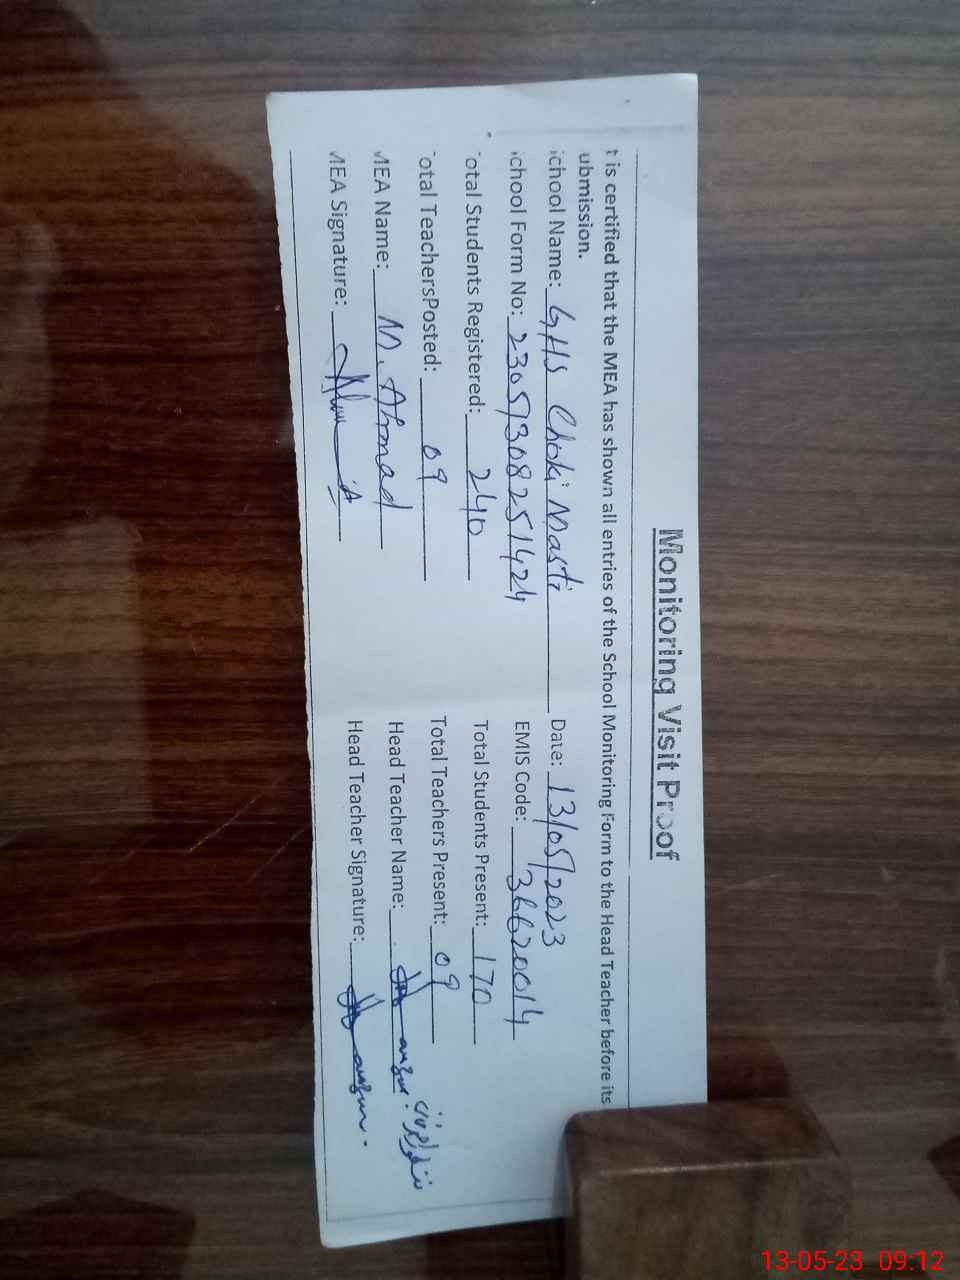 Monitoring Visit Proof
t is certified that the MEA has shown all entries of the School Monitoring Form to the Head Teacher before its
ubmission.
chool Name: GHS Choki Masti Date: 13/05/2023
chool Form No: 23051308251424 EMIS Code: 36620014
otal Students Registered: 240 Total Students Present: 170
otal TeachersPosted: 09 Total Teachers Present: 09
MEA Name: M. Ahmad Head Teacher Name:
MEA Signature: Head Teacher Signature:
13-05-23 09:12